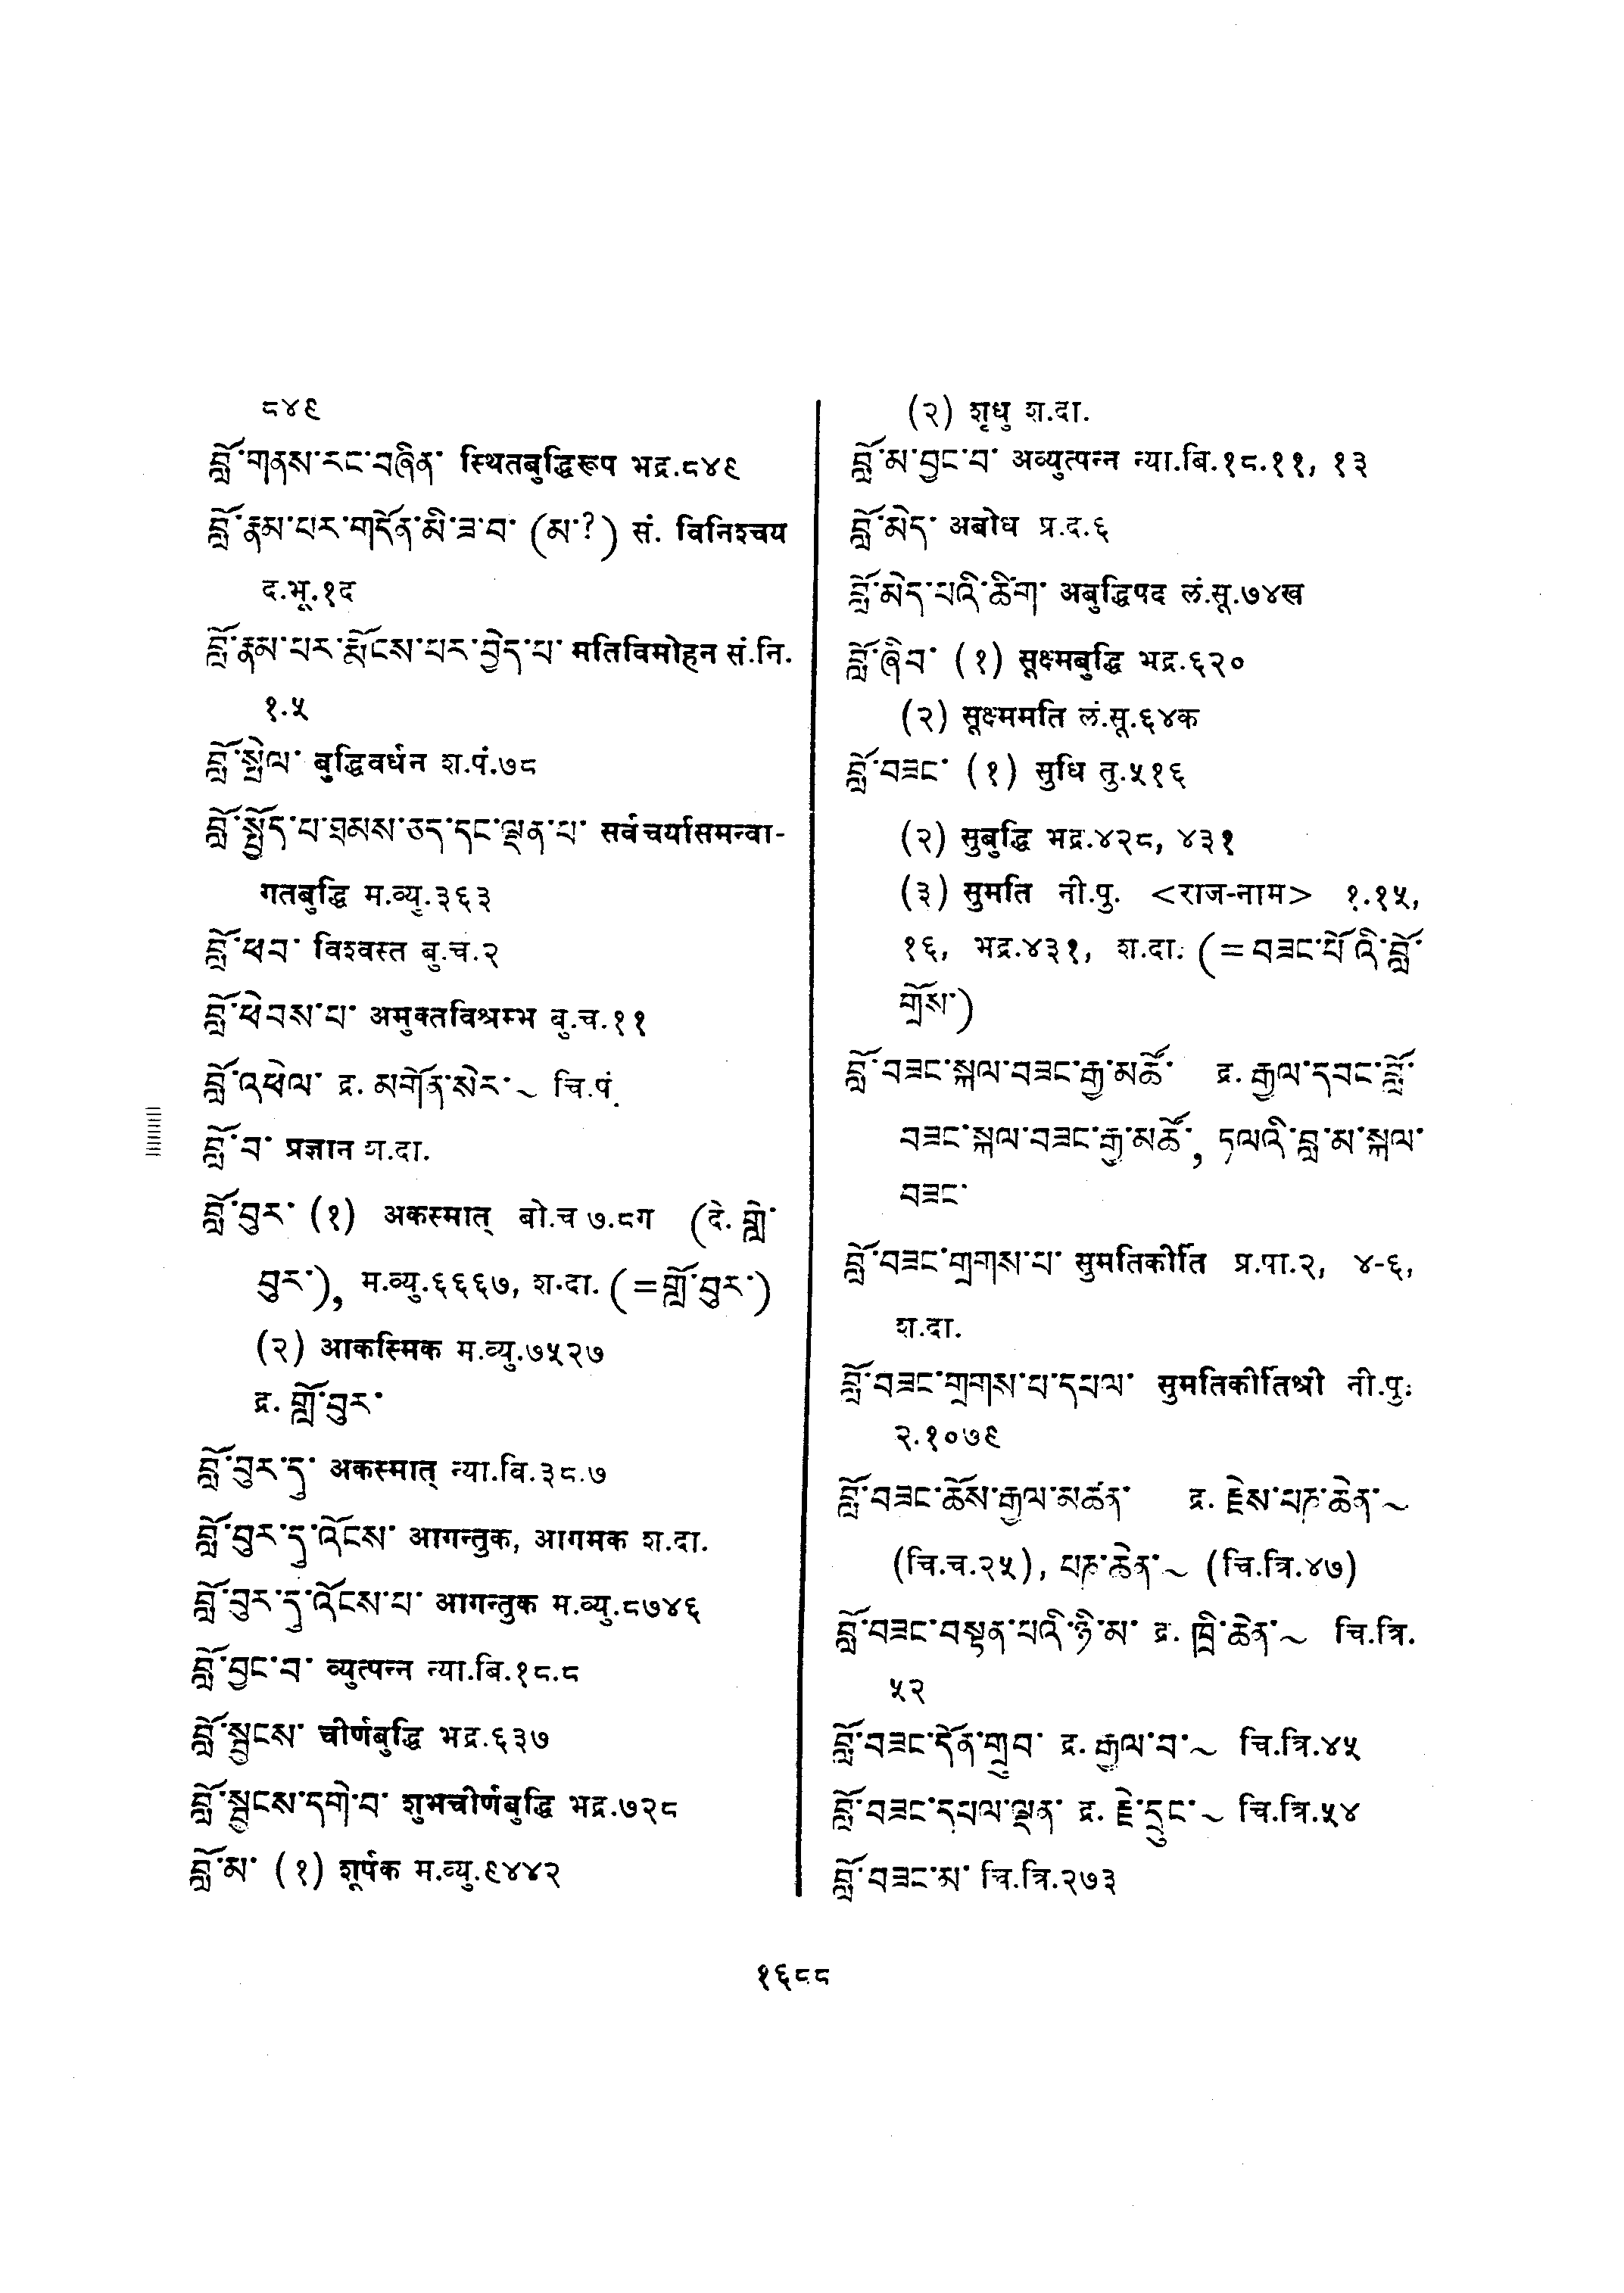 ८४९
བློ་གནས་རང་བཞིན་ स्थितबुद्धिरूप भद्र.८४९
བློ་རྣམ་པར་གདོན་མི་ཟ་བ་ (མ་?) सं. विनिश्चय
द.भू.१द
བློ་རྣམ་པར་རྨོངས་པར་བྱེད་པ་ मतिविमोहन सं.नि.
१.५
བློ་སྤེལ་ बुद्धिवर्धन श.पं.७८
བློ་སྤྱོད་པ་ཐམས་ཅད་དང་ལྡན་པ་ सर्वचर्यासमन्वा-
गतबुद्धि म.व्यु.३६३
བློ་ཕབ་ विश्वस्त बु.च.२
བློ་ཕེབས་པ་ अमुक्तविश्रम्भ बु.च.११
བློ་འཕེལ་ द्र. མགོན་སེར་~ चि.पं.
བློ་བ་ प्रज्ञान श.दा.
བློ་བུར་ (१) अकस्मात् बो.च ७.८ग (दे. གློ་
བུར་), म.व्यु.६६६७, श.दा. (=གློ་བུར་)
(२) आकस्मिक म.व्यु.७५२७
द्र. གློ་བུར་
བློ་བུར་དུ་ अकस्मात् न्या.वि.३८.७
བློ་བུར་དུ་འོངས་ आगन्तुक, आगमक श.दा.
བློ་བུར་དུ་འོངས་པ་ आगन्तुक म.व्यु.८७४६
བློ་བྱང་བ་ व्युत्पन्न न्या.बि.१८.८
བློ་སྦྱངས་ चीर्णबुद्धि भद्र.६३७
བློ་སྦྱངས་དགེ་བ་ शुभचीर्णबुद्धि भद्र.७२८
བློ་མ་ (१) शूर्पक म.व्यु.९४४२
(२) शृधु श.दा.
བློ་མ་བྱང་བ་ अव्युत्पन्न न्या.बि.१८.११, १३
བློ་མེད་ अबोध प्र.द.६
བློ་མེད་པའི་ཚིག་ अबुद्धिपद लं.सू.७४ख
བློ་ཞིབ་ (१) सूक्ष्मबुद्धि भद्र.६२०
(२) सूक्ष्ममति लं.सू.६४क
བློ་བཟང་ (१) सुधि तु.५१६
(२) सुबुद्धि भद्र.४२८, ४३१
(३) सुमति नी.पु. <राज-नाम> १.१५,
१६, भद्र.४३१, श.दा. (=བཟང་པོ་འི་བློ་
གྲོས་)
བློ་བཟང་སྐལ་བཟང་རྒྱ་མཚོ་ द्र. རྒྱལ་དབང་བློ་
བཟང་སྐལ་བཟང་རྒྱ་མཚོ་, ཏལའི་བླ་མ་སྐལ་
བཟང་
བློ་བཟང་གྲགས་པ་ सुमतिकीर्ति प्र.पा.२, ४-६,
श.दा.
བློ་བཟང་གྲགས་པ་དཔལ་ सुमतिकीर्तिश्री नी.पु.
२.१०७९
བློ་བཟང་ཆོས་རྒྱལ་མཚན་ द्र. རྗེས་པཎ་ཆེན་~
(चि.च.२५), པཎ་ཆེན་~ (चि.त्रि.४७)
བློ་བཟང་བསྟན་པའི་ཉི་མ་ द्र. ཁྲི་ཆེན་~ चि.त्रि.
५२
བློ་བཟང་དོན་གྲུབ་ द्र. རྒྱལ་བ་~ चि.त्रि.४५
བློ་བཟང་དཔལ་ལྡན་ द्र. རྗེ་དྲུང་~ चि.त्रि.५४
བློ་བཟང་མ་ चि.त्रि.२७३
१६८८